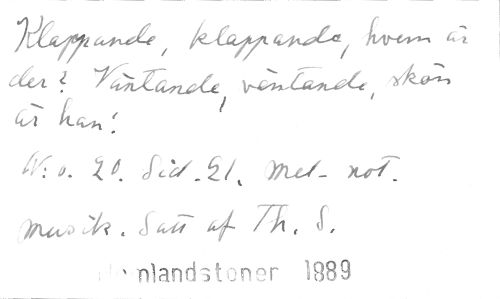 Klappande, klappande, hvem är
der? Väntande, väntande, skön
är han!
N:o. 20. Sid. 21. Med not.
musik. Satt af Th. S.
mlandstoner 1889